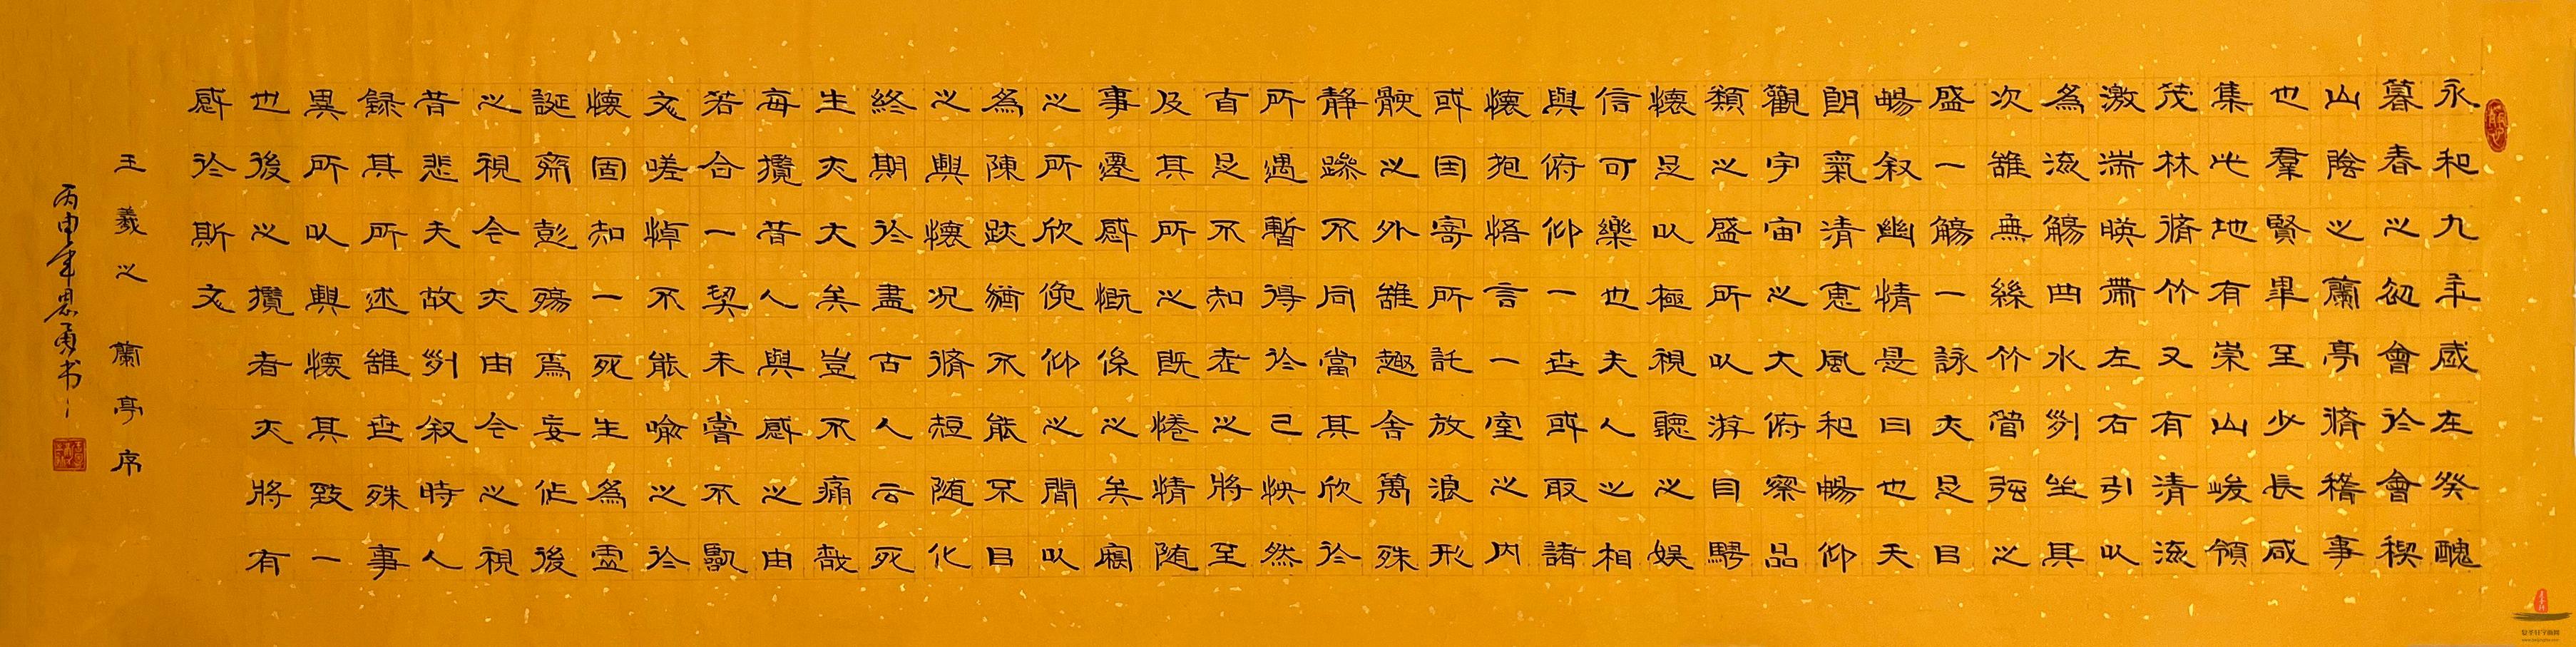 永和九年歲在癸醜
暮春之初會於會稧
山陰之蘭亭脩稽事
也羣賢畢至少長咸
集此地有崇山峻領
茂林脩竹又有清流
激湍暎帶左右引以
為流觴曲水列坐其
次雖無絲竹管弦之
盛一觴一詠亦足㠯
暢叙幽情是日也天
朗氣清惠風和暢仰
觀宇宙之大俯察品
類之盛所以游目騁
懷足以極視聽之娛
信可樂也夫人之相
與俯仰一世或取諸
懷抱悟言一室之內
或因寄所託放浪形
骸之外雖趣舍萬殊
静躁不同當其欣於
所遇暫得於己怏然
自足不知老之將至
及其所之既惓情随
事遷感慨係之矣向
之所欣俛仰之間以
為陳跡猶不能不㠯
之興懷況脩短随化
終期於盡古人云死
生亦大矣豈不痛哉
每攬昔人興感之由
若合一契未嘗不臨
文嗟悼不能喻之於
懷固知一死生為虛
誕齊彭殤為妄作後
之視今亦由今之視
昔悲夫故列叙時人
録其所述雖世殊事
異所以興懷其致一
也後之攬者亦將有
感於斯文
王羲之 蘭亭序
丙申年思勇书